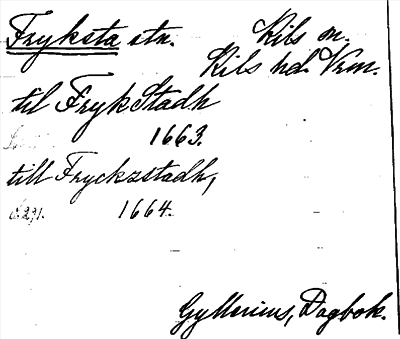 Fryksta stn. Kils sn.
Kils hd. Vrm.
til FrykStadh
1663.
till Fryckzstadh,
s. 291. 1664.
Gyllenius, Dagbok.